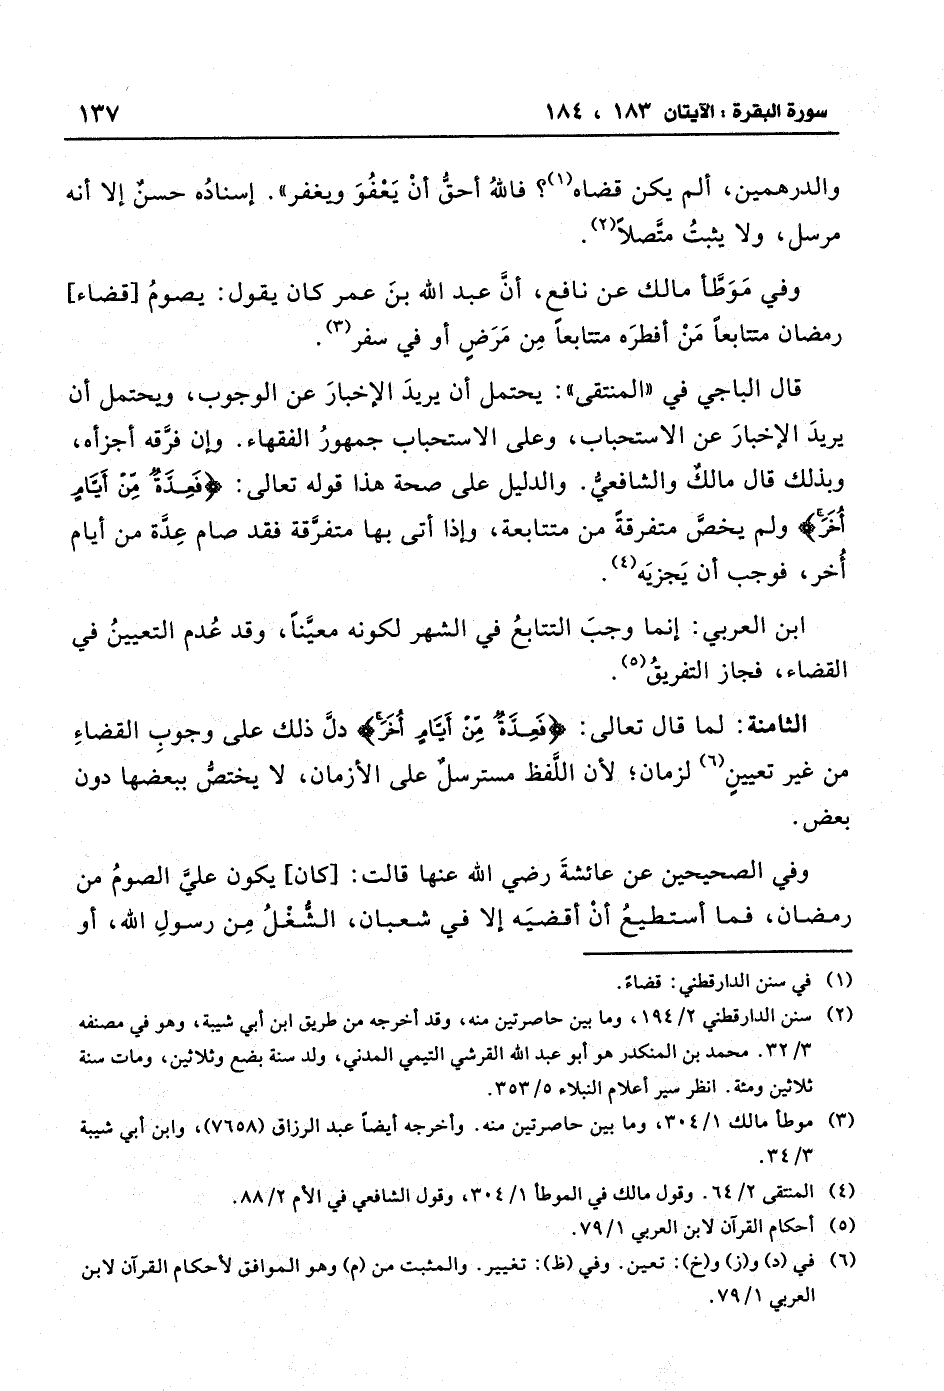 سورة البقرة : الآيتان ١٨٣ ، ١٨٤ ١٣٧
والدرهمين، ألم يكن قضاه(١)؟ فاللهُ أحقُّ أنْ يَعْفُوَ ويغفر». إسنادُه حسنٌ إلا أنه
مرسل، ولا يثبتُ متَّصلاً(٢).
وفي مَوَطَّأ مالك عن نافع، أنَّ عبد الله بنَ عمر كان يقول: يصومُ [قضاء]
رمضان متتابعاً مَنْ أفطرَه متتابعاً مِن مَرَضٍ أو في سفر(٣).
قال الباجي في «المنتقى»: يحتمل أن يريدَ الإخبارَ عن الوجوب، ويحتمل أن
يريدَ الإخبارَ عن الاستحباب، وعلى الاستحباب جمهورُ الفقهاء. وإن فرَّقه أجزأه،
وبذلك قال مالكٌ والشافعيُّ. والدليل على صحة هذا قوله تعالى: ﴿فَعِدَّةٌ مِّنْ أَيَّامٍ
أُخَرَۚ﴾ ولم يخصَّ متفرقةً من متتابعة، وإذا أتى بها متفرَّقة فقد صام عِدَّة من أيام
أُخر، فوجب أن يَجزيَه(٤).
ابن العربي: إنما وجبَ التتابعُ في الشهر لكونه معيَّناً، وقد عُدم التعيينُ في
القضاء، فجاز التفريقُ(٥).
الثامنة: لما قال تعالى: ﴿فَعِدَّةٌ مِّنْ أَيَّامٍ أُخَرَۚ﴾ دلَّ ذلك على وجوبِ القضاءِ
من غير تعيينٍ(٦) لزمان؛ لأن اللَّفظ مسترسلٌ على الأزمان، لا يختصُّ ببعضها دون
بعض.
وفي الصحيحين عن عائشةَ رضي الله عنها قالت: [كان] يكون عليَّ الصومُ من
رمضان، فما أستطيعُ أنْ أقضيَه إلا في شعبان، الشُّغْلُ مِن رسولِ الله، أو
(١) في سنن الدارقطني: قضاءً.
(٢) سنن الدارقطني ٢/ ١٩٤، وما بين حاصرتين منه، وقد أخرجه من طريق ابن أبي شيبة، وهو في مصنفه
٣/ ٣٢. محمد بن المنكدر هو أبو عبد الله القرشي التيمي المدني، ولد سنة بضع وثلاثين، ومات سنة
ثلاثين ومئة. انظر سير أعلام النبلاء ٥/ ٣٥٣.
(٣) موطأ مالك ١/ ٣٠٤، وما بين حاصرتين منه. وأخرجه أيضاً عبد الرزاق (٧٦٥٨)، وابن أبي شيبة
٣/ ٣٤.
(٤) المنتقى ٢/ ٦٤. وقول مالك في الموطأ ١/ ٣٠٤، وقول الشافعي في الأم ٢/ ٨٨.
(٥) أحكام القرآن لابن العربي ١/ ٧٩.
(٦) في (د) و(ز) و(خ): تعين. وفي (ظ): تغيير. والمثبت من (م) وهو الموافق لأحكام القرآن لابن
العربي ١/ ٧٩.